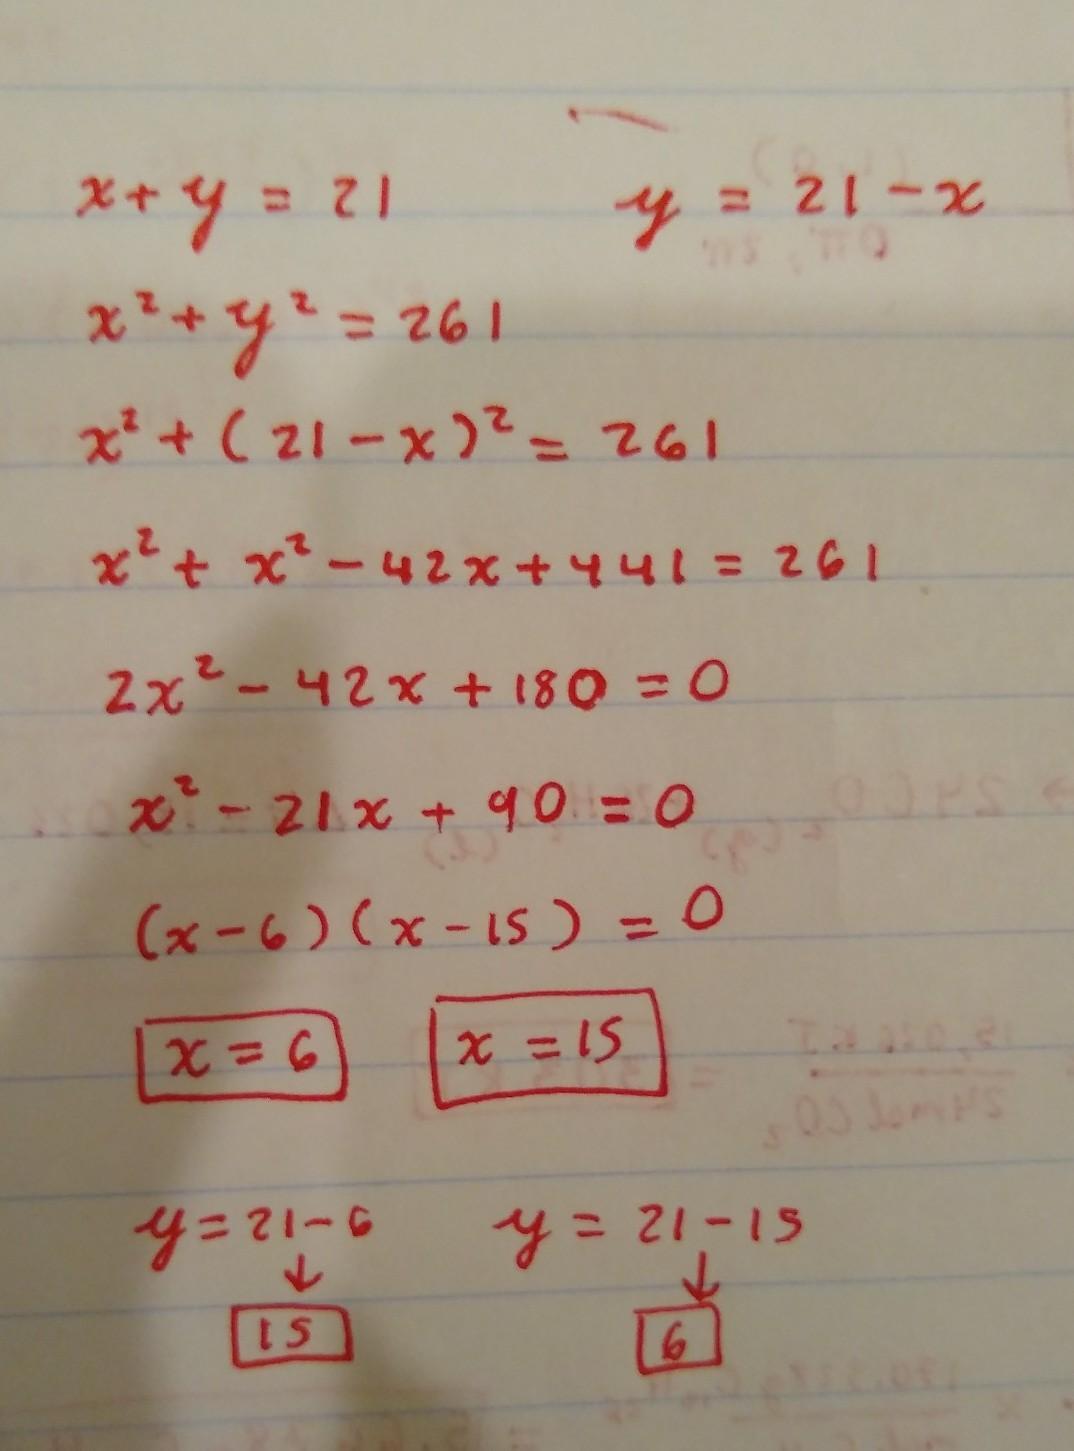 x + y = 21 y = 21 - x
x² + y² = 261
x² + (21 - x)² = 261
x² + x² - 42x + 441 = 261
2x² - 42x + 180 = 0
x² - 21x + 90 = 0
(x - 6)(x - 15) = 0
x = 6 x = 15
y = 21 - 6 y = 21 - 15
↓ ↓
15 6